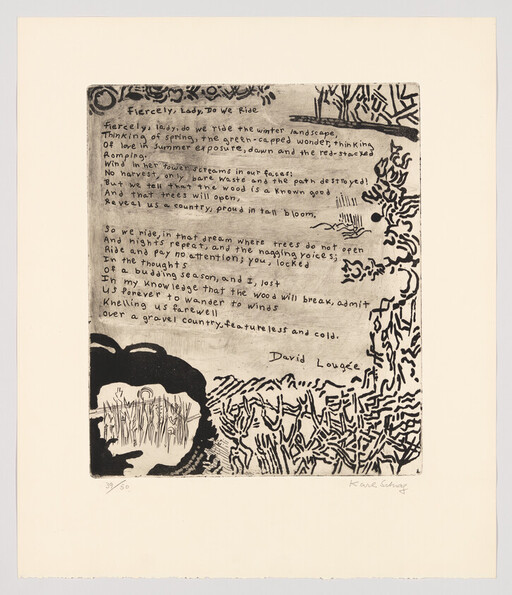 Fiercely, Lady, Do We Ride
Fiercely, lady, do we ride the winter landscape,
Thinking of spring, the green-capped wonder, thinking
Of love in summer exposure, dawn and the red-stacked
Romping.
Wind in her tower, screams in our faces;
No harvest, only bare waste and the path destroyed!
But we tell that the wood is a known good
And that trees will open,
Reveal us a country, proud in tall bloom.
So we ride, in that dream where trees do not open
And nights repeat, and the nagging voices;
Ride and pay no attention; you, locked
In the thoughts
Of a budding season, and I, lost
In my knowledge that the wood will break, admit
Us forever to wander to winds
Knelling us farewell
Over a gravel country, featureless and cold.
David Lougée
39/50
Karl Schrag